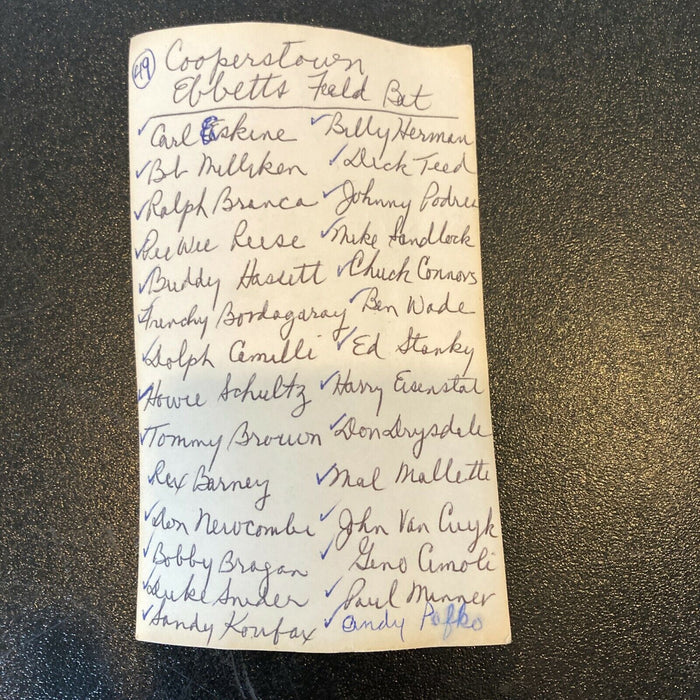 49 Cooperstown
Ebbetts Field Bat
✓Carl Erskine ✓Billy Herman
✓Bob Milliken ✓Dick Teed
✓Ralph Branca ✓Johnny Podres
✓Pee Wee Reese ✓Mike Sandlock
✓Buddy Hassett ✓Chuck Connors
✓Frenchy Bordagaray ✓Ben Wade
✓Dolph Camilli ✓Ed Stanky
✓Howie Schultz ✓Harry Eisenstat
✓Tommy Brown ✓Don Drysdale
Rex Barney ✓Mal Mallette
✓Don Newcombe ✓John Van Cuyk
✓Bobby Bragan ✓Gino Cimoli
✓Duke Snider ✓Paul Minner
✓Sandy Koufax ✓Andy Pafko